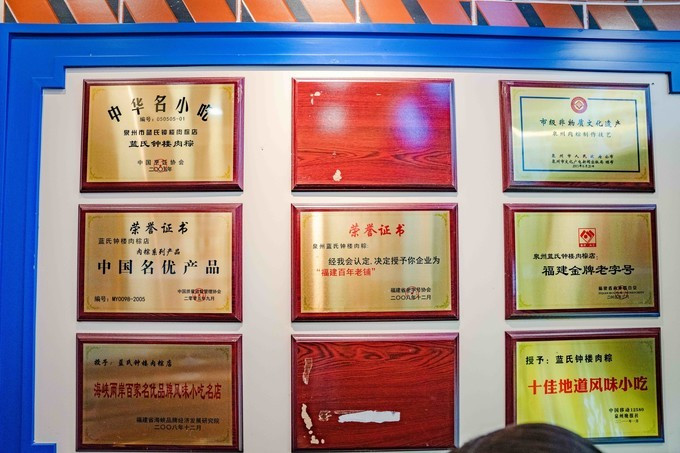 中华名小吃
编号：050505-01
泉州市蓝氏钟楼肉粽店
蓝氏钟楼肉粽
中国烹饪协会
市级非物质文化遗产
泉州肉粽制作技艺
泉州市人民政府
荣誉证书
蓝氏钟楼肉粽店
肉粽系列产品
中国名优产品
编号：MY0098-2005
二零零五年九月
荣誉证书
泉州蓝氏钟楼肉粽：
经我会认定，决定授予你企业为
“福建百年老铺”
二〇〇八年十二月
泉州蓝氏钟楼肉粽店：
福建金牌老字号
授予：蓝氏钟楼肉粽店
海峡两岸百家名优品牌风味小吃名店
福建省海峡品牌经济发展研究院
二〇〇八年十二月
授予：蓝氏钟楼肉粽
十佳地道风味小吃
中国移动12580